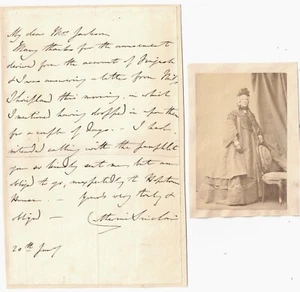 My dear Mrs Jackson
Many thanks for the amusement
derived from the account of
& I was answering a letter from
this morning, in which
I mentioned having dropped in upon them
for a couple of days. - I had
intended calling with the pamphlet
you so kindly sent me, but am
obliged to go, unexpectedly to
House - Yours very truly &
obliged - Catherine Sinclair
20th